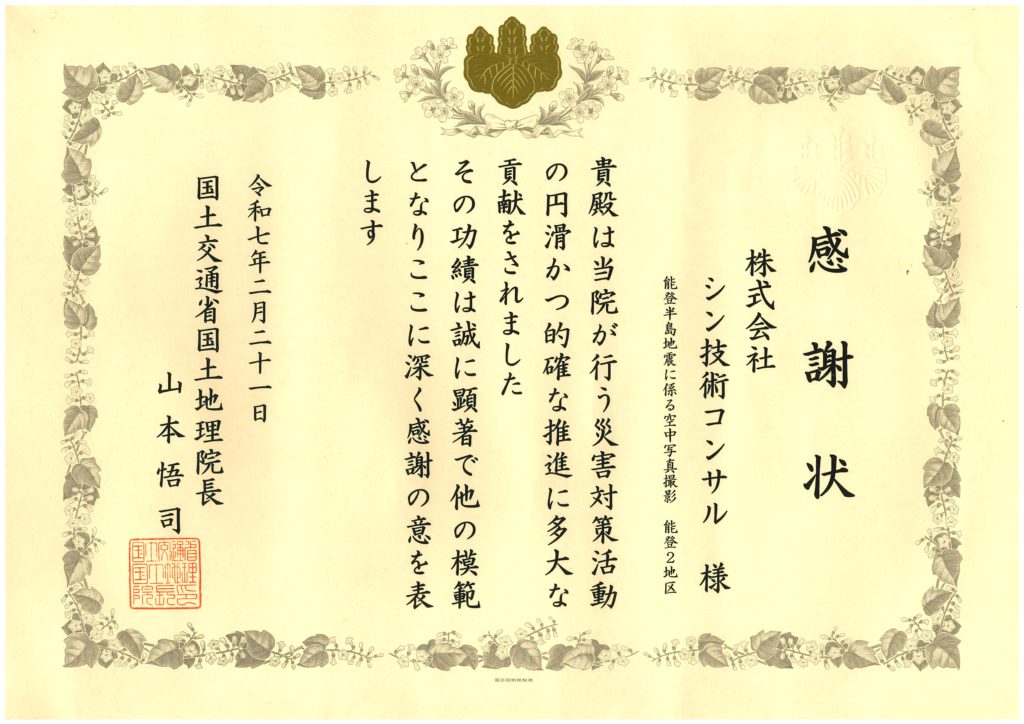 感謝状
株式会社
シン技術コンサル 様
能登半島地震に係る空中写真撮影 能登2地区
貴殿は当院が行う災害対策活動
の円滑かつ的確な推進に多大な
貢献をされました
その功績は誠に顕著で他の模範
となりここに深く感謝の意を表
します
令和七年二月二十一日
国土交通省国土地理院長
山本悟司